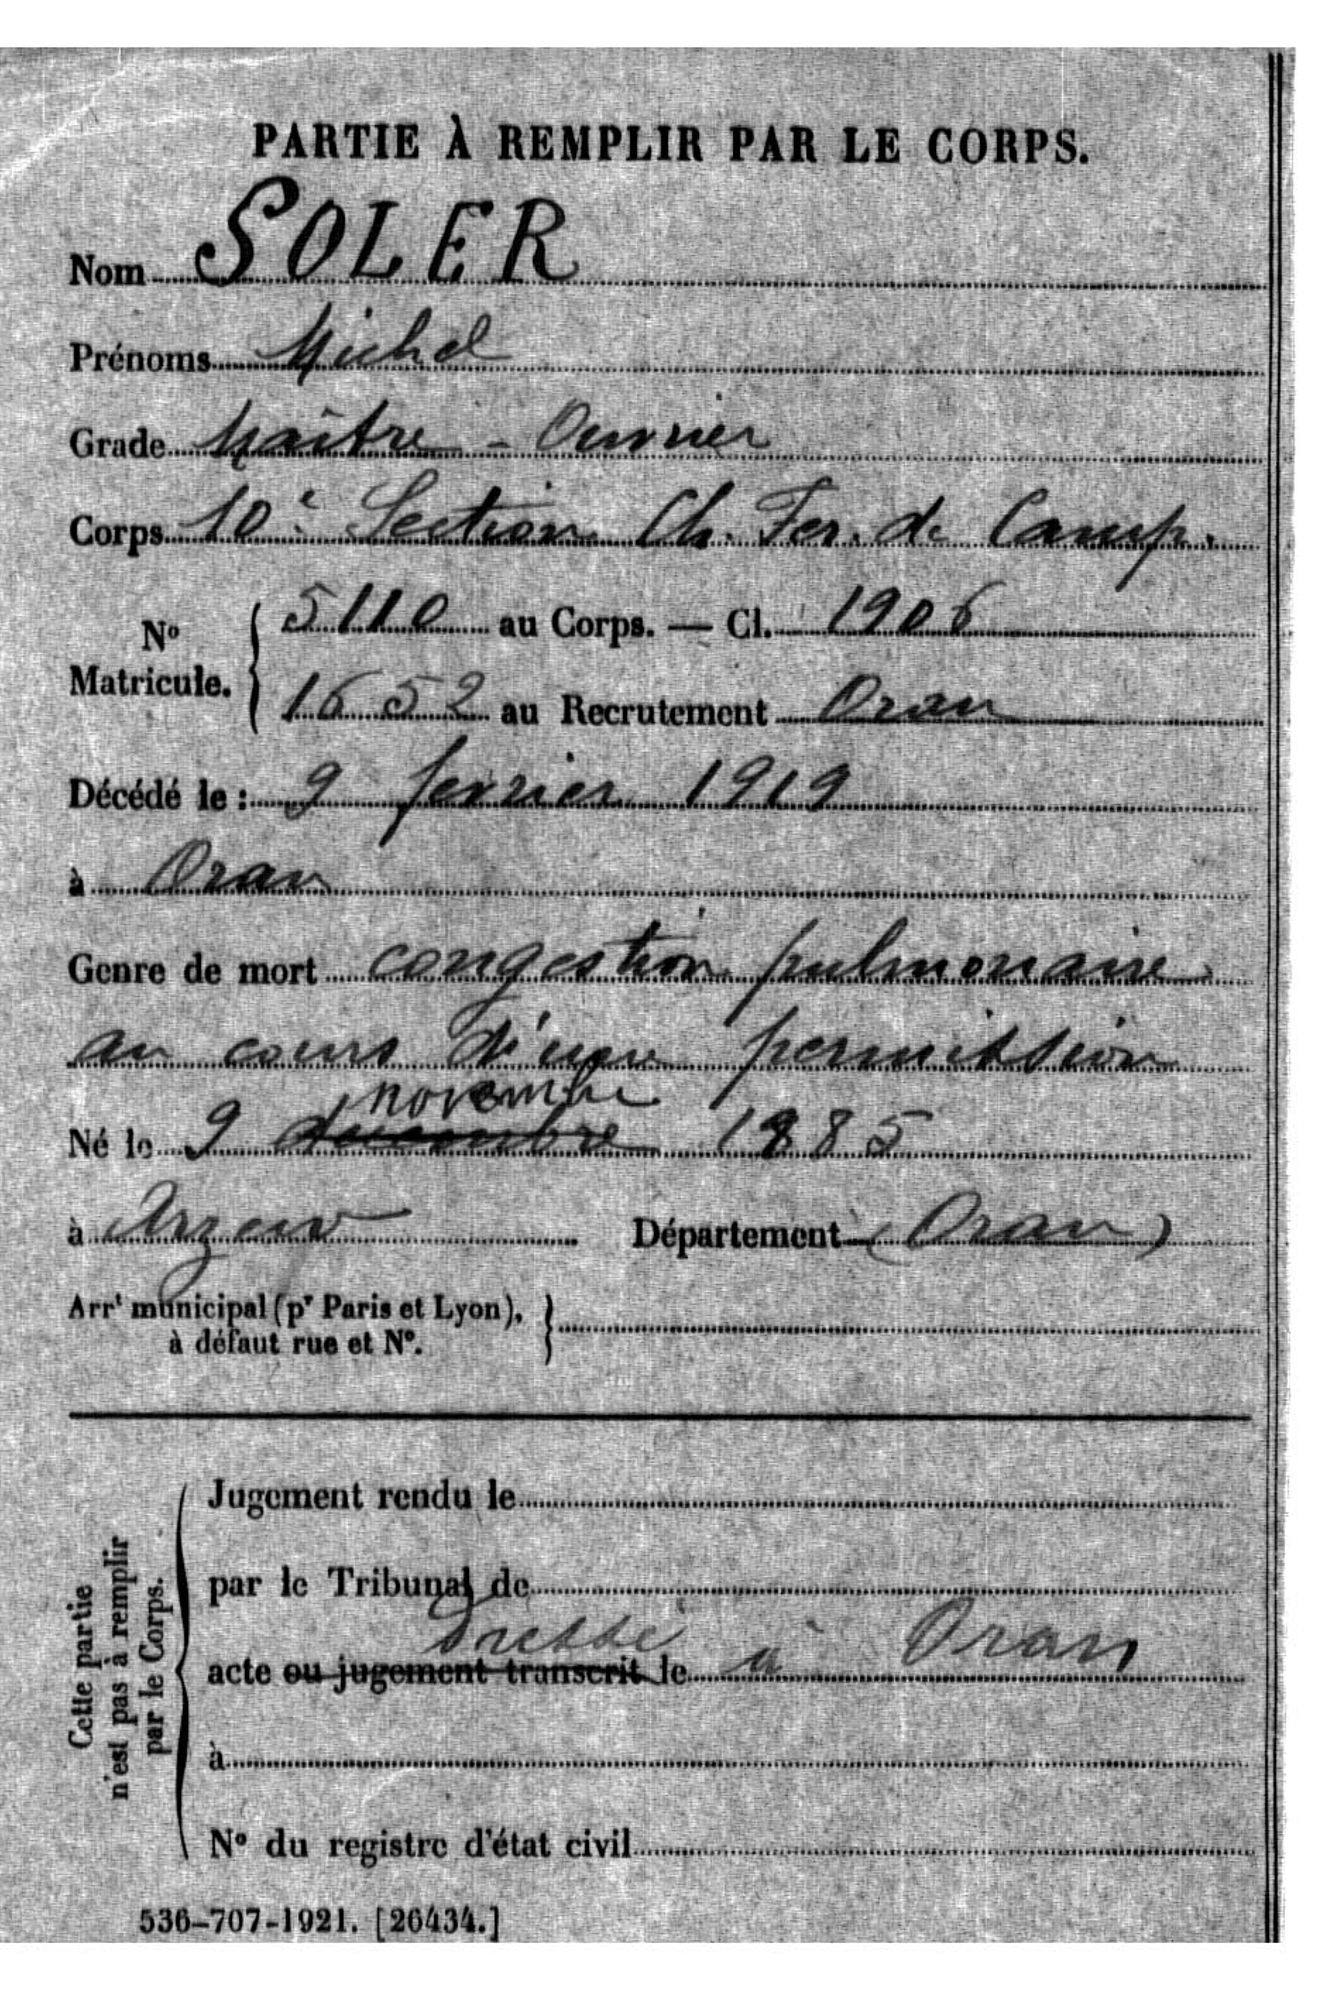 PARTIE À REMPLIR PAR LE CORPS.
Nom SOLER
Prénoms Michel
Grade Maître - Ouvrier
Corps 10e Section Ch. Fer. de Camp.
N° Matricule. { 5110 au Corps. — Cl. 1906
1652 au Recrutement Oran
Décédé le : 9 février 1919
à Oran
Genre de mort congestion pulmonaire
au cours d'une permission
novembre
Né le 9 decembre 1885
à Arzew Département (Oran)
Arrt municipal (pr Paris et Lyon), }
à défaut rue et N°.
Cette partie n'est pas à remplir par le Corps.
Jugement rendu le
par le Tribunal de
dressé
acte ou jugement transcrit le à Oran
à
N° du registre d'état civil
536-707-1921. [26434.]